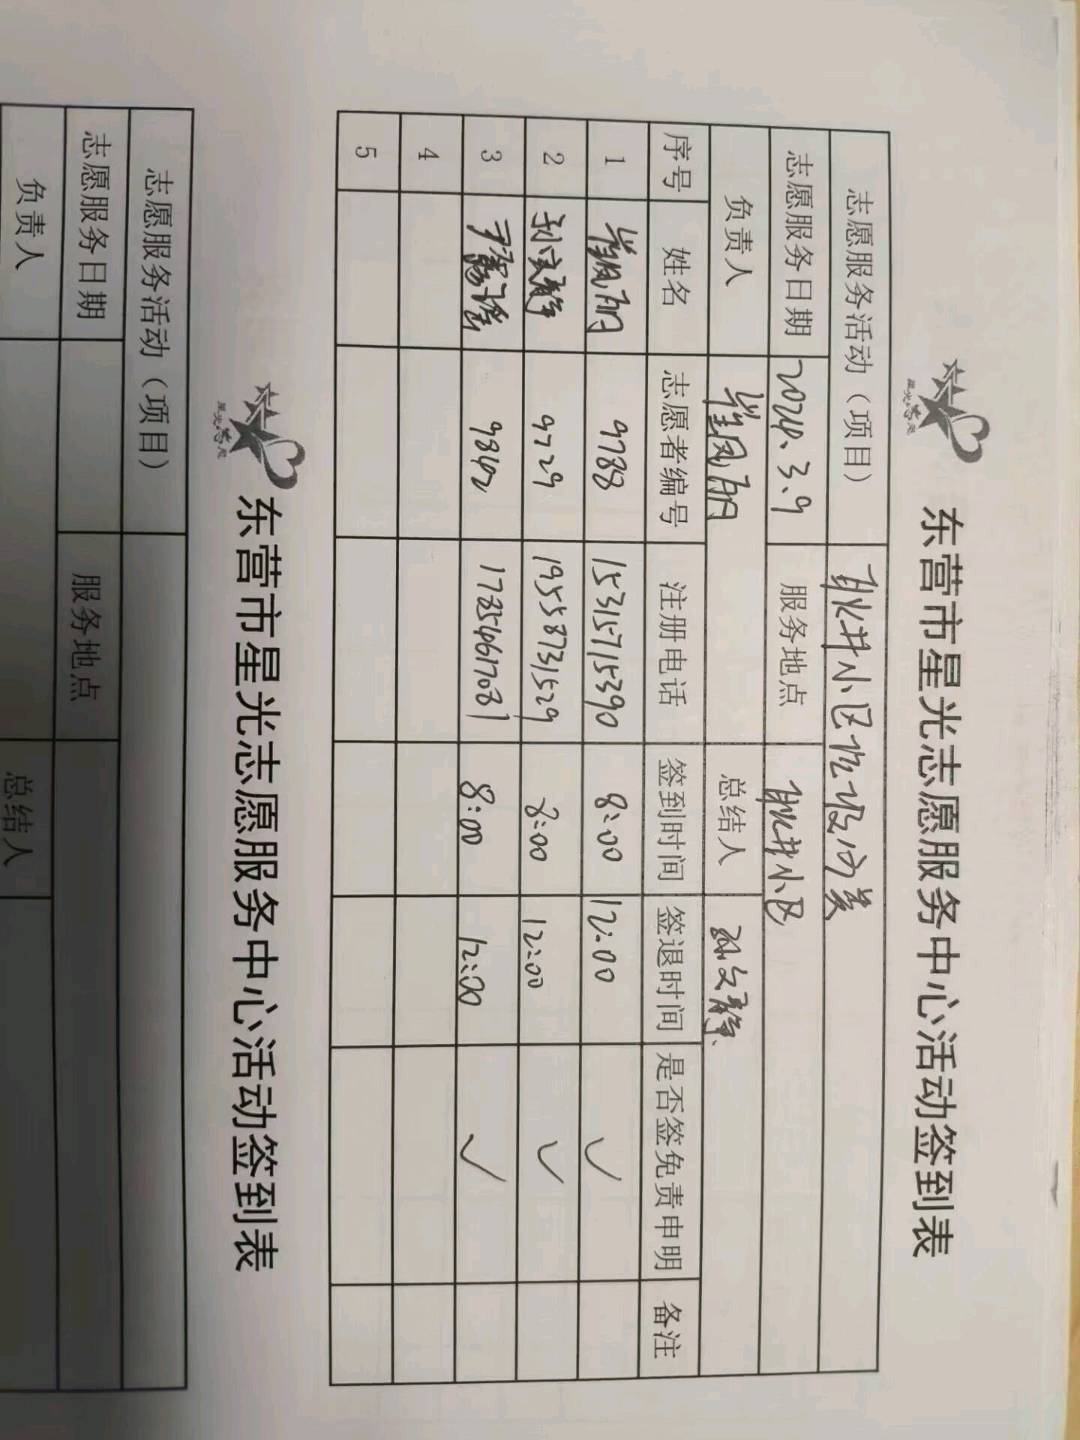 东营市星光志愿服务中心活动签到表
志愿服务活动（项目） 耿井小区垃圾分类
志愿服务日期 2024.3.9 服务地点 耿井小区
负责人 崔凤丽 总结人 孙文静
序号 姓名 志愿者编号 注册电话 签到时间 签退时间 是否签免责申明 备注
1 崔凤丽 9788 15315715390 8:00 12:00 ✓
2 孙文静 9729 19558731529 8:00 12:00 ✓
3 9842 17854617081 8:00 12:00 ✓
4
5
东营市星光志愿服务中心活动签到表
志愿服务活动（项目）
志愿服务日期 服务地点
负责人 总结人